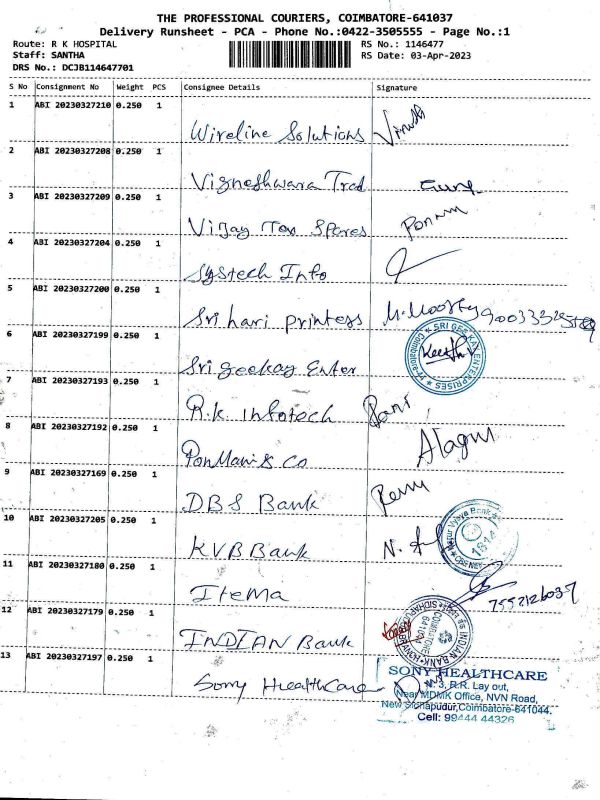 THE PROFESSIONAL COURIERS, COIMBATORE-641037
Delivery Runsheet - PCA - Phone No.:0422-3505555 - Page No.:1
Route: R K HOSPITAL
Staff: SANTHA
DRS No.: DCJB114647701
RS No.: 1146477
RS Date: 03-Apr-2023
S No Consignment No Weight PCS Consignee Details Signature
1 ABI 20230327210 0.250 1
Wireline Solutions
2 ABI 20230327208 0.250 1
Vigneshwara Trad
3 ABI 20230327209 0.250 1
Vijay Tex Spares
4 ABI 20230327204 0.250 1
Systech Info
5 ABI 20230327200 0.250 1
Sri hari printess M. Moorthy
6 ABI 20230327199 0.250 1
Sri geekay Enter
SRI GEE KAY ENTERPRISES
Coimbatore
7 ABI 20230327193 0.250 1
R.K. Infotech Rani
8 ABI 20230327192 0.250 1
PonMani & Co
9 ABI 20230327169 0.250 1
DBS Bank
10 ABI 20230327205 0.250 1
KVB Bank
Vysya Bank
11 ABI 20230327180 0.250 1
Itema
12 ABI 20230327179 0.250 1
INDIAN Bank
INDIAN BANK
COIMBATORE
13 ABI 20230327197 0.250 1
Sony HealthCare
SONY HEALTHCARE
N. 3, R.R. Lay out,
Near MDMK Office, NVN Road,
New Sidhapudur, Coimbatore-641044.
Cell: 99444 44326